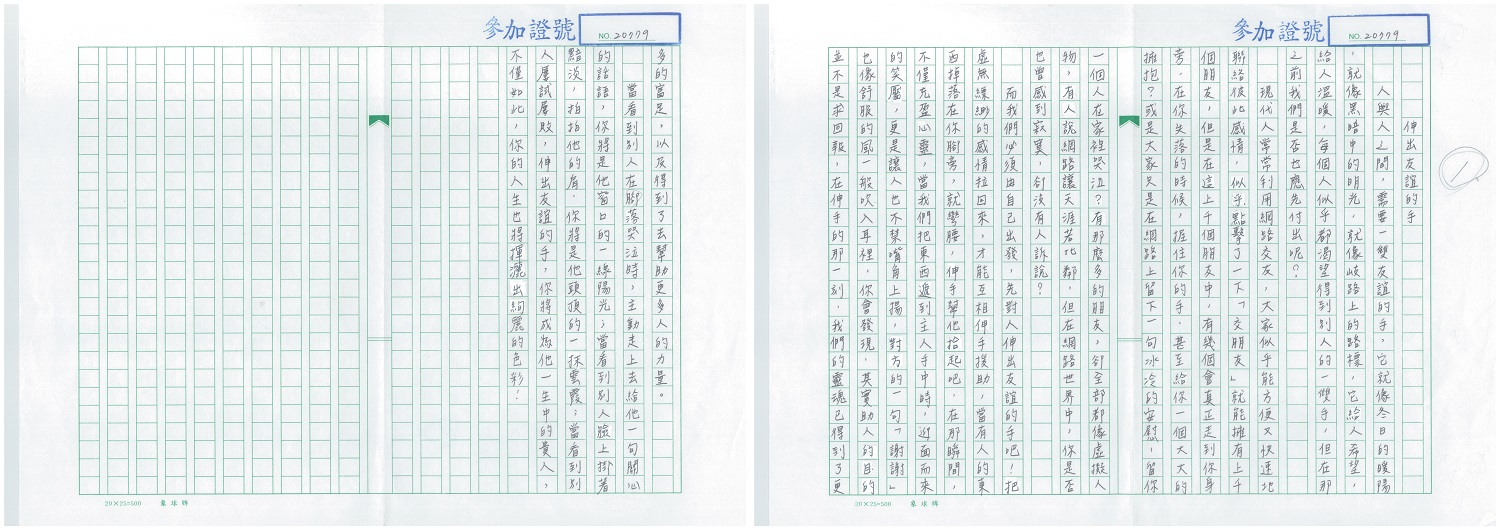 參加證號
NO. 20779
1
伸出友誼的手
人與人之間，需要一雙友誼的手，它就像冬日的暖陽
，就像黑暗中的明光，就像岐路上的路標，它給人希望，
給人溫暖，每個人似乎都渴望得到別人的一雙手，但在那
之前我們是否也應先付出呢？
現代人常常利用網路交友，大家似乎能方便又快速地
聯絡彼此感情，似乎點擊了一下「交朋友」就能擁有上千
個朋友，但是在這上千個朋友中，有幾個會真正走到你身
旁，在你失落的時候，握住你的手，甚至給你一個大大的
擁抱？或是大家只是在網路上留下一句冰冷的安慰，留你
一個人在家裡哭泣？有那麼多的朋友，卻全部都像虛擬人
物，有人說網路讓天涯若比鄰，但在網路世界中，你是否
也曾感到寂寞，卻沒有人訴說？
而我們必須由自己出發，先對人伸出友誼的手吧！把
虛無縹緲的感情拉回來，才能互相伸手援助，當有人的東
西掉落在你腳旁，就彎腰，伸手幫他拾起吧，在那瞬間，
不僅充盈心靈，當我們把東西遞到主人手中時，迎面而來
的笑靨，更是讓人也不禁嘴角上揚，對方的一句「謝謝」
也像舒服的風一般吹入耳裡，你會發現，其實助人的目的
並不是求回報，在伸手的那一刻，我們的靈魂已得到了更
20×25=500 象球牌
參加證號
NO. 20779
多的富足，以友得到了去幫助更多人的力量。
當看到別人在腳落哭泣時，主動走上去給他一句關心
的話語，你將是他窗口的一線陽光；當看到別人臉上掛著
黯淡，拍拍他的肩，你將是他頭頂的一抹雲霞；當看到別
人屢試屢敗，伸出友誼的手，你將成為他一生中的貴人，
不僅如此，你的人生也將揮灑出絢麗的色彩！
20×25=500 象球牌